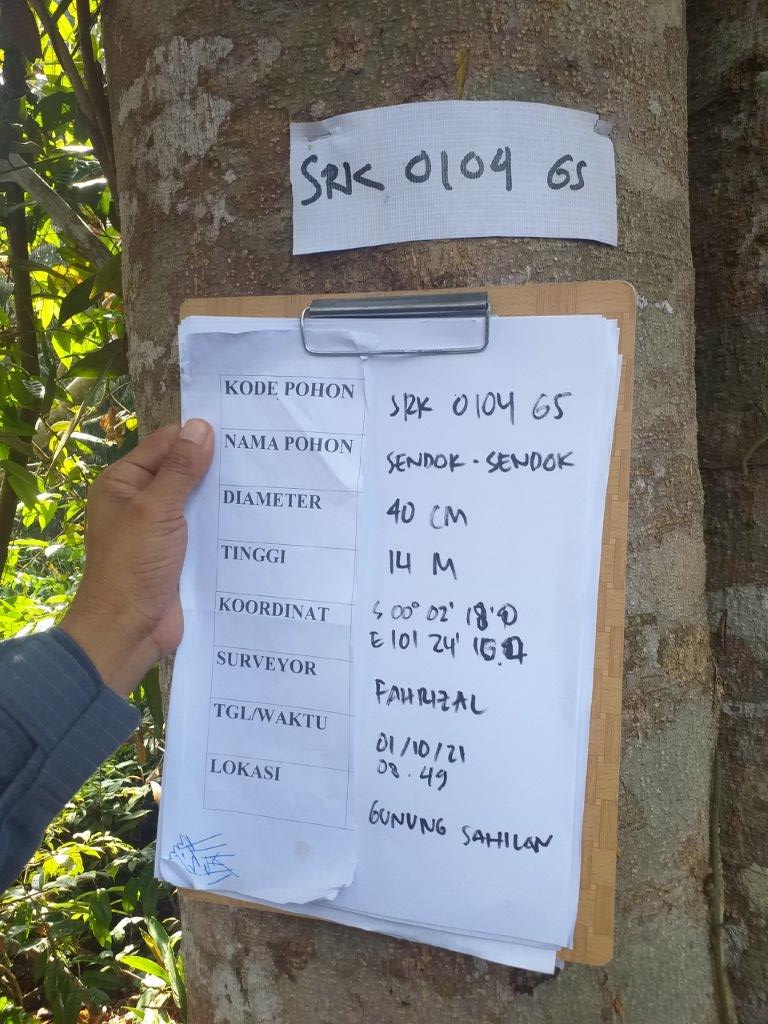 SRK 0104 GS
KODE POHON SRK 0104 GS
NAMA POHON SENDOK - SENDOK
DIAMETER 40 CM
TINGGI 14 M
KOORDINAT S 00° 02'
E 101 24'
SURVEYOR FAHRIZAL
TGL/WAKTU 01/10/21
08.49
LOKASI GUNUNG SAHILAN